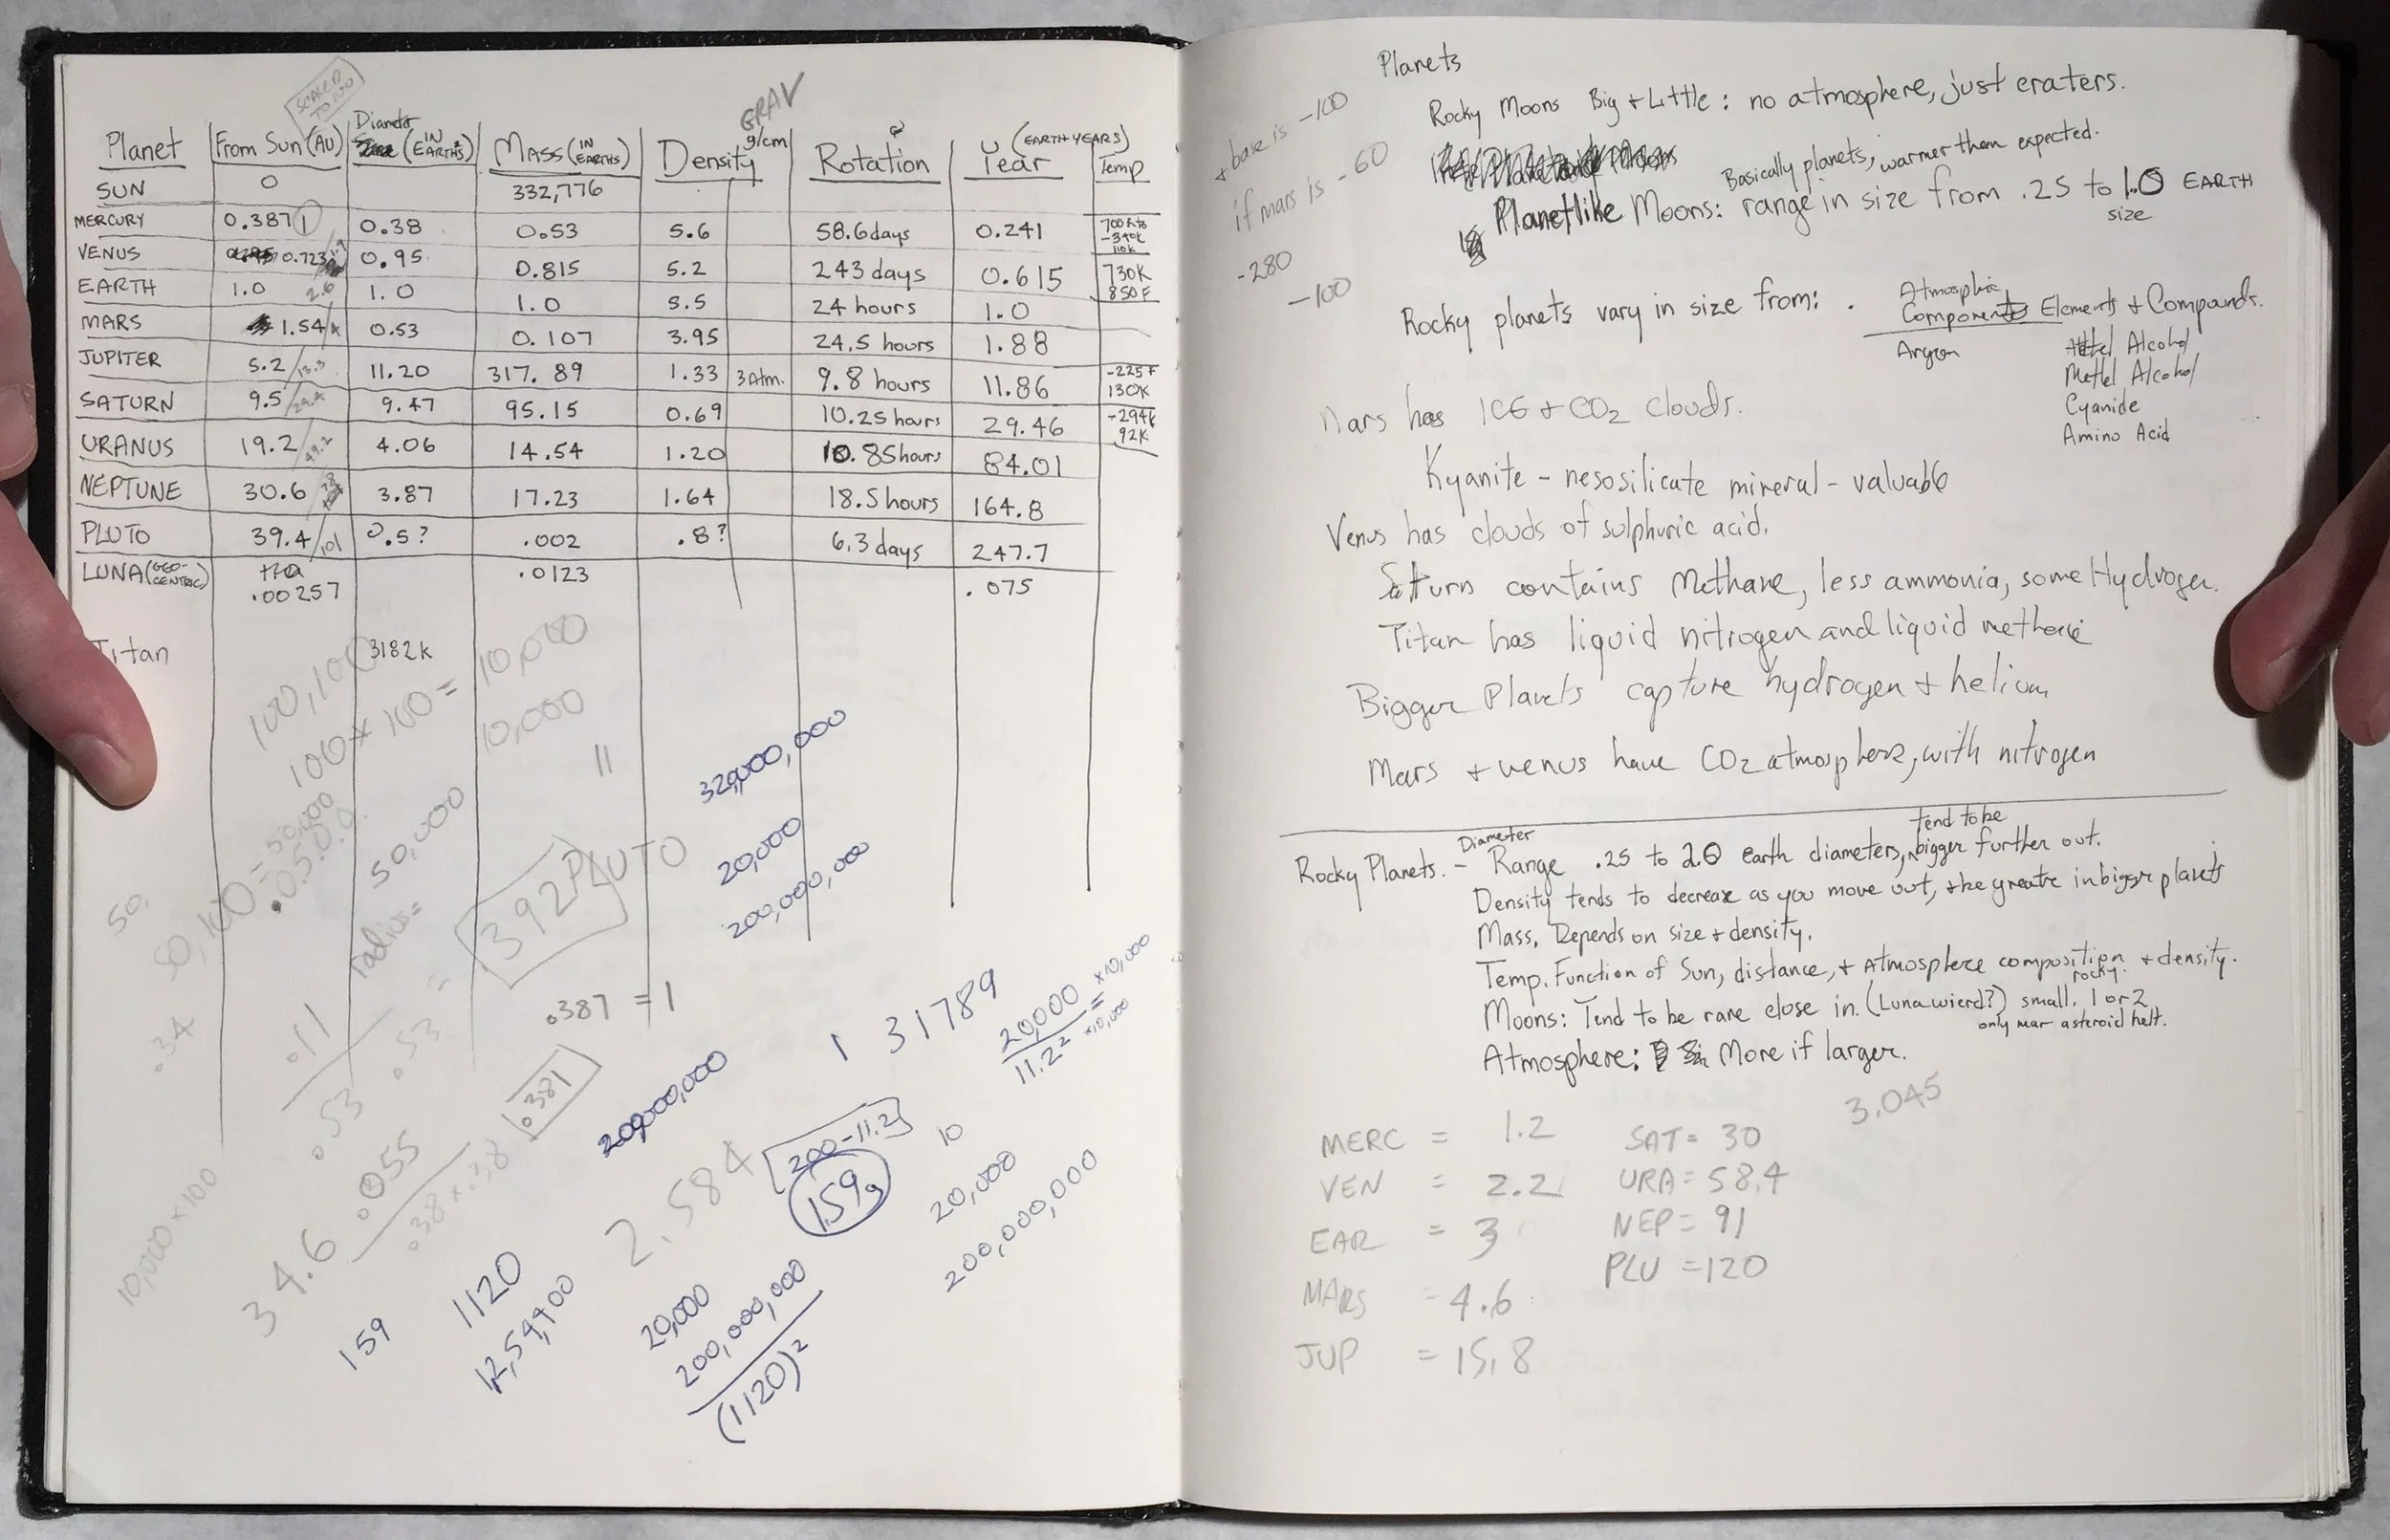 SCALED TO 100
GRAV
Planet From Sun (AU) Diameter (IN EARTHS) MASS (IN EARTHS) Density g/cm Rotation Year (EARTH YEARS) Temp
SUN 0 332,776
MERCURY 0.387 1 0.38 0.53 5.6 58.6 days 0.241 700
VENUS 0.723 0.95 0.815 5.2 243 days 0.615 730K 850F
EARTH 1.0 2.6 1.0 1.0 5.5 24 hours 1.0
MARS 1.54/4 0.53 0.107 3.95 24.5 hours 1.88
JUPITER 5.2/13.3 11.20 317.89 1.33 3 Atm. 9.8 hours 11.86 -225F 130K
SATURN 9.5/24.4 9.47 95.15 0.69 10.25 hours 29.46 -294F 92K
URANUS 19.2/49.2 4.06 14.54 1.20 10.85 hours 84.01
NEPTUNE 30.6 3.87 17.23 1.64 18.5 hours 164.8
PLUTO 39.4/101 0.5? .002 .8? 6.3 days 247.7
LUNA (GEO-CENTRIC) .00257 .0123 .075
Titan 3182k
100,100
100 x 100 = 10,000
10,000
50,000
50,100 =
.05.0.0.
50,000
50,
radius =
392 PLUTO
.34
.11
.53 .53 =
.387 = 1
.381
.055
.38 x .38
34.6
10,000 x 100
159
1120
12,54,400
2.584
320,000,000
20,000
200,000,000
200,000,000
1 31789
20,000 = x10,000
11.2² x10,000
200-11.2
159g
10
20,000
200,000,000
20,000
200,000,000
(1120)²
Planets
+ base is -100
if mars is -60
-280
-100
Rocky Moons Big + Little : no atmosphere, just craters.
Basically planets, warmer then expected.
Planetlike Moons: range in size from .25 to 1.0 EARTH size
Rocky planets vary in size from: .
Atmosphic Components Elements + Compounds.
Argon Alcohol
Methel Alcohol
Cyanide
Amino Acid
Mars has ICE + CO2 clouds.
Kyanite - nesosilicate mineral - valuable
Venus has clouds of sulphuric acid.
Saturn contains Methane, less ammonia, some Hydrogen.
Titan has liquid nitrogen and liquid methane
Bigger Planets capture hydrogen + helium
Mars + venus have CO2 atmosphere, with nitrogen
Rocky Planets. - Diameter Range .25 to 2.0 earth diameters, tend to be bigger further out.
Density tends to decrease as you move out, + be greater in bigger planets
Mass, Depends on size + density.
Temp. Function of Sun, distance, + Atmosphere composition + density.
Moons: Tend to be rare close in. (Luna wierd?) small, rocky. 1 or 2
only near asteroid belt.
Atmosphere: More if larger.
3.045
MERC = 1.2 SAT = 30
VEN = 2.2 URA = 58.4
EAR = 3 NEP = 91
MARS = 4.6 PLU = 120
JUP = 15.8